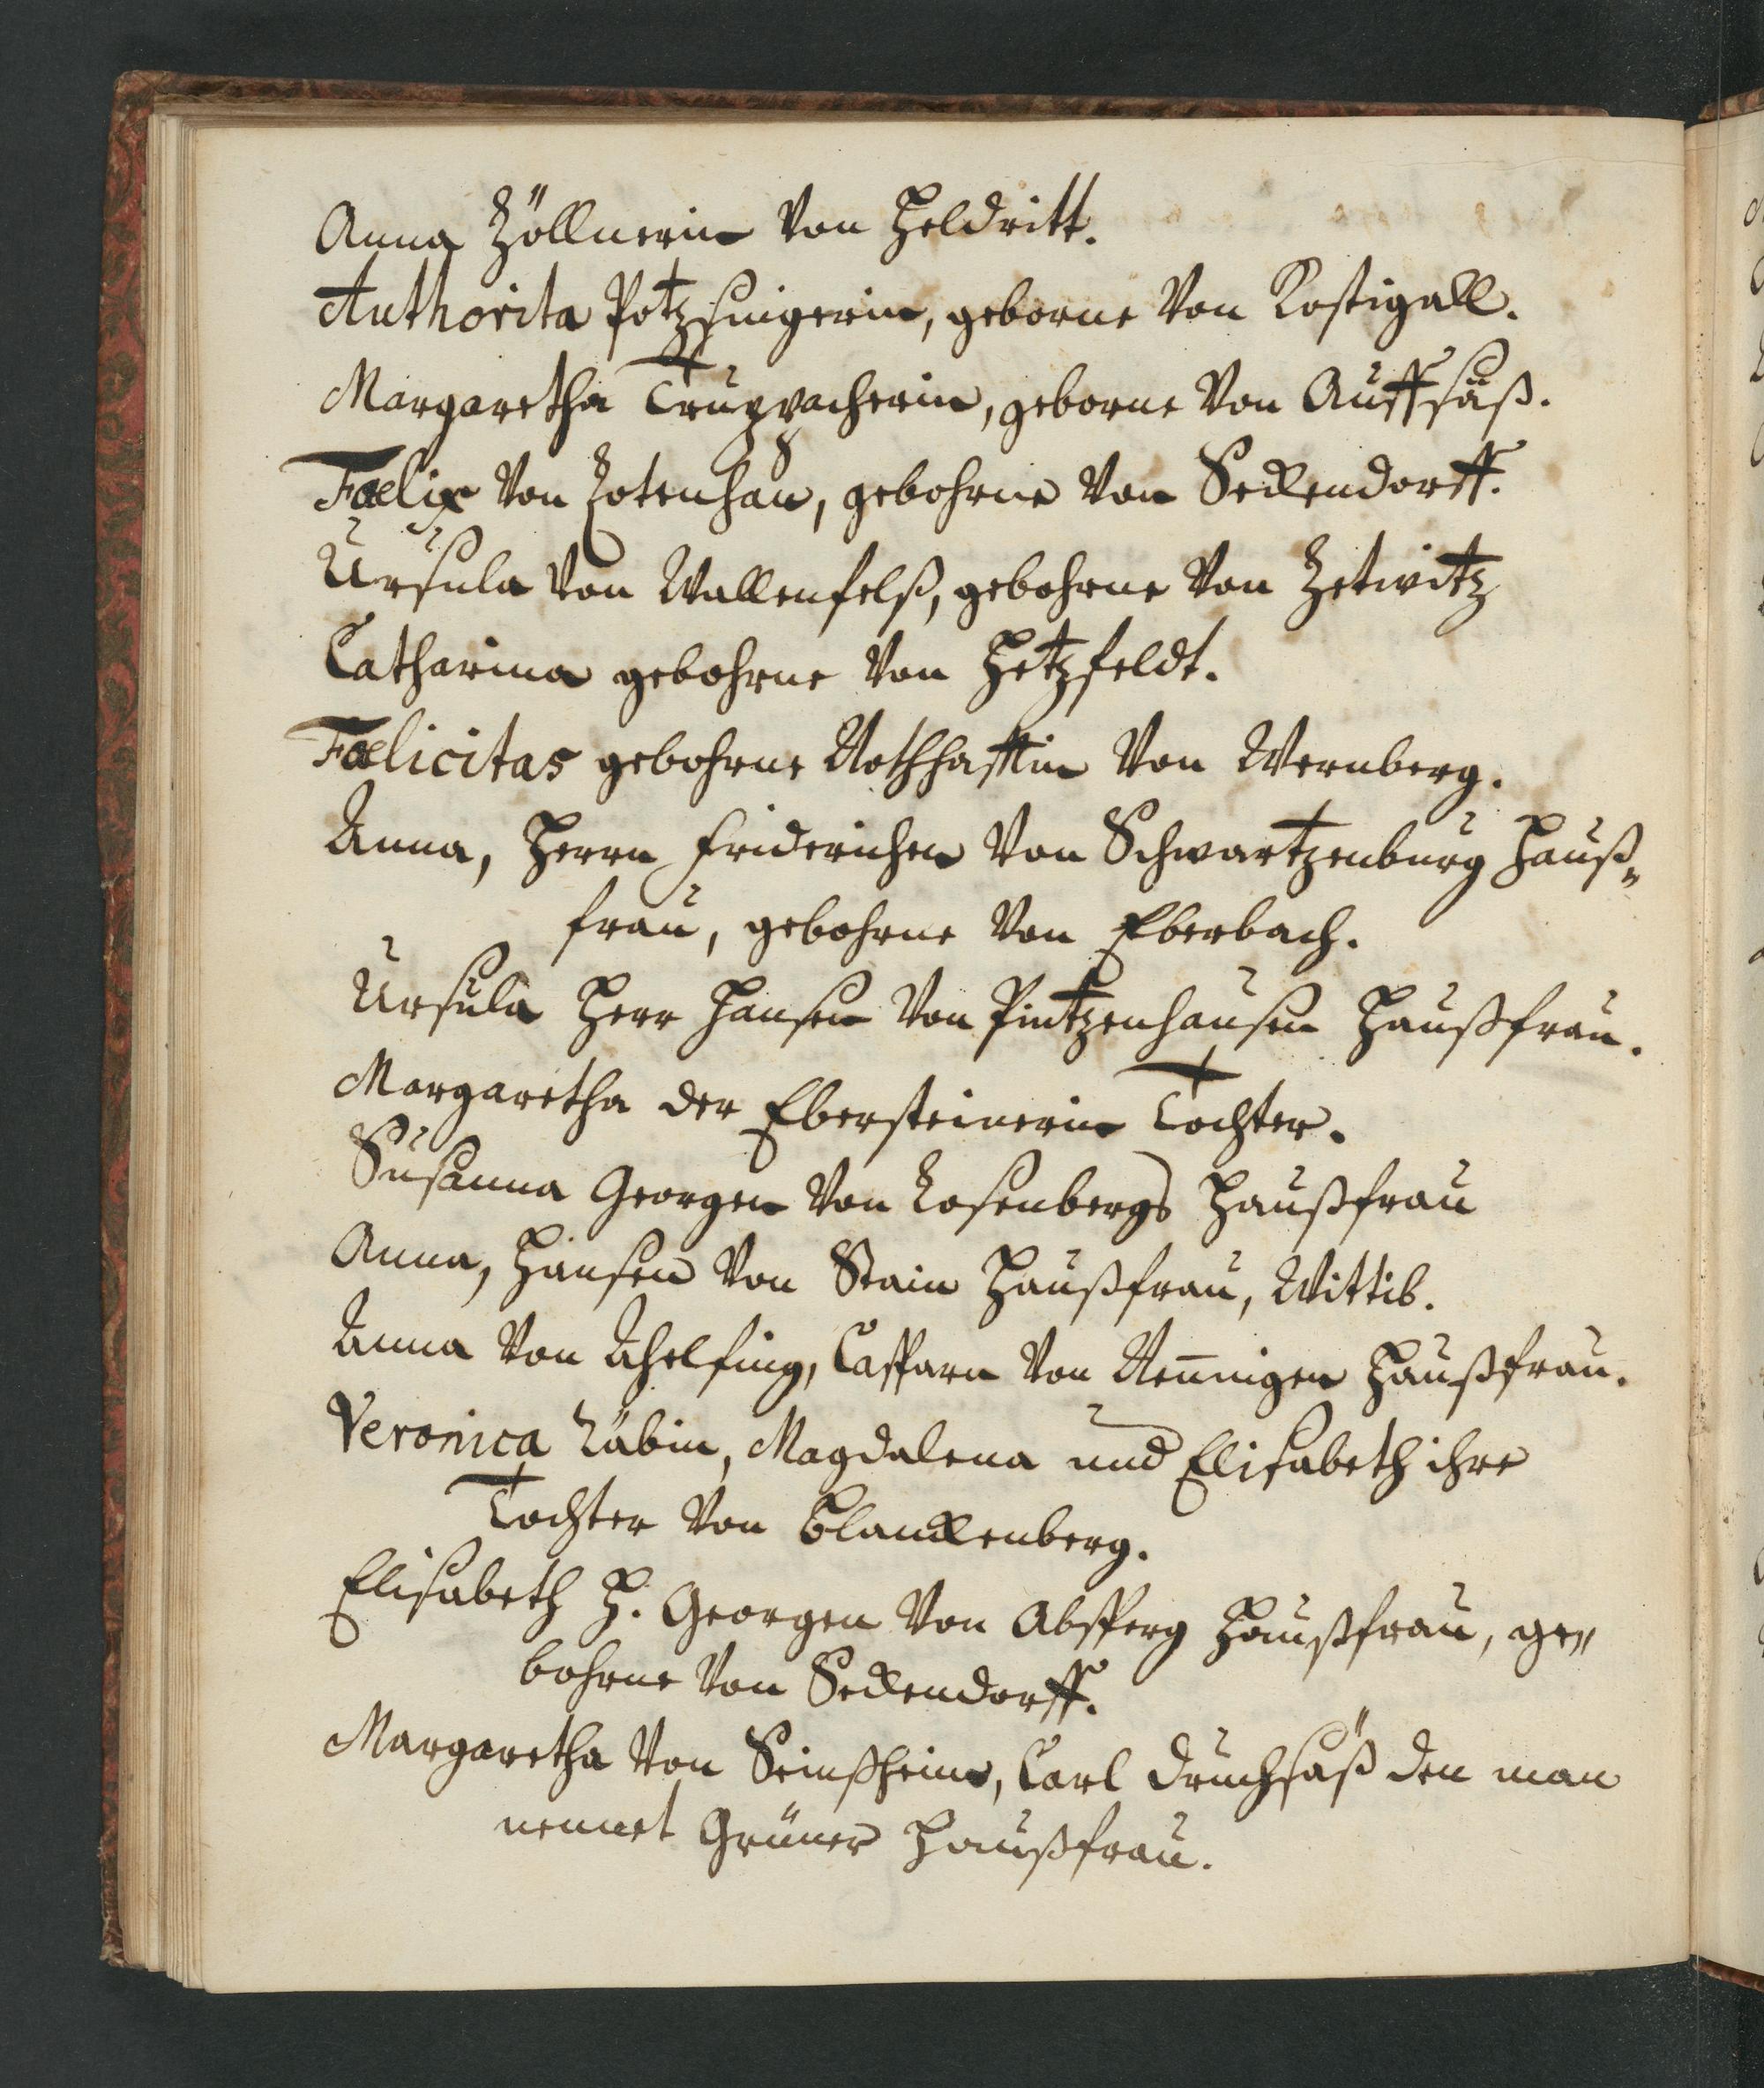 Anna Zöllnerin von Heldritt.
Authorita Potzlingerin, geborne von Rostigall.
Margaretha Truppacherin, geborne von Auffsäß.
Fœlix von Rotenhan, gebohrne von Seckendorff.
Ursula von Wallenfelß, gebohrne von Zetwitz
Catharina gebohrne von Hetzfeldt.
Fœlicitas gebohrne Nothhafftin von Wernberg.
Anna, Herrn Friderichen von Schwartzenburg Hauß„
frau, gebohrne von Eberbach.
Ursula Herr Hansen von Pintzenhausen Haußfrau.
Margaretha der Ebersteinerin Tochter.
Susanna Georgen von Rosenbergs Haußfrau
Anna, Hansen von Stain Haußfrau, Wittib.
Anna von Ahelfing, Casparn von Nenningen Haußfrau.
Veronica Räbin, Magdalena und Elisabeth ihre
Tochter von Blanckenberg.
Elisabeth H. Georgen von Absperg Haußfrau, ge„
bohrne von Seckendorff.
Margaretha von Seinßheim, Carl Druchsäß den man
nennet Grüner Haußfrau.